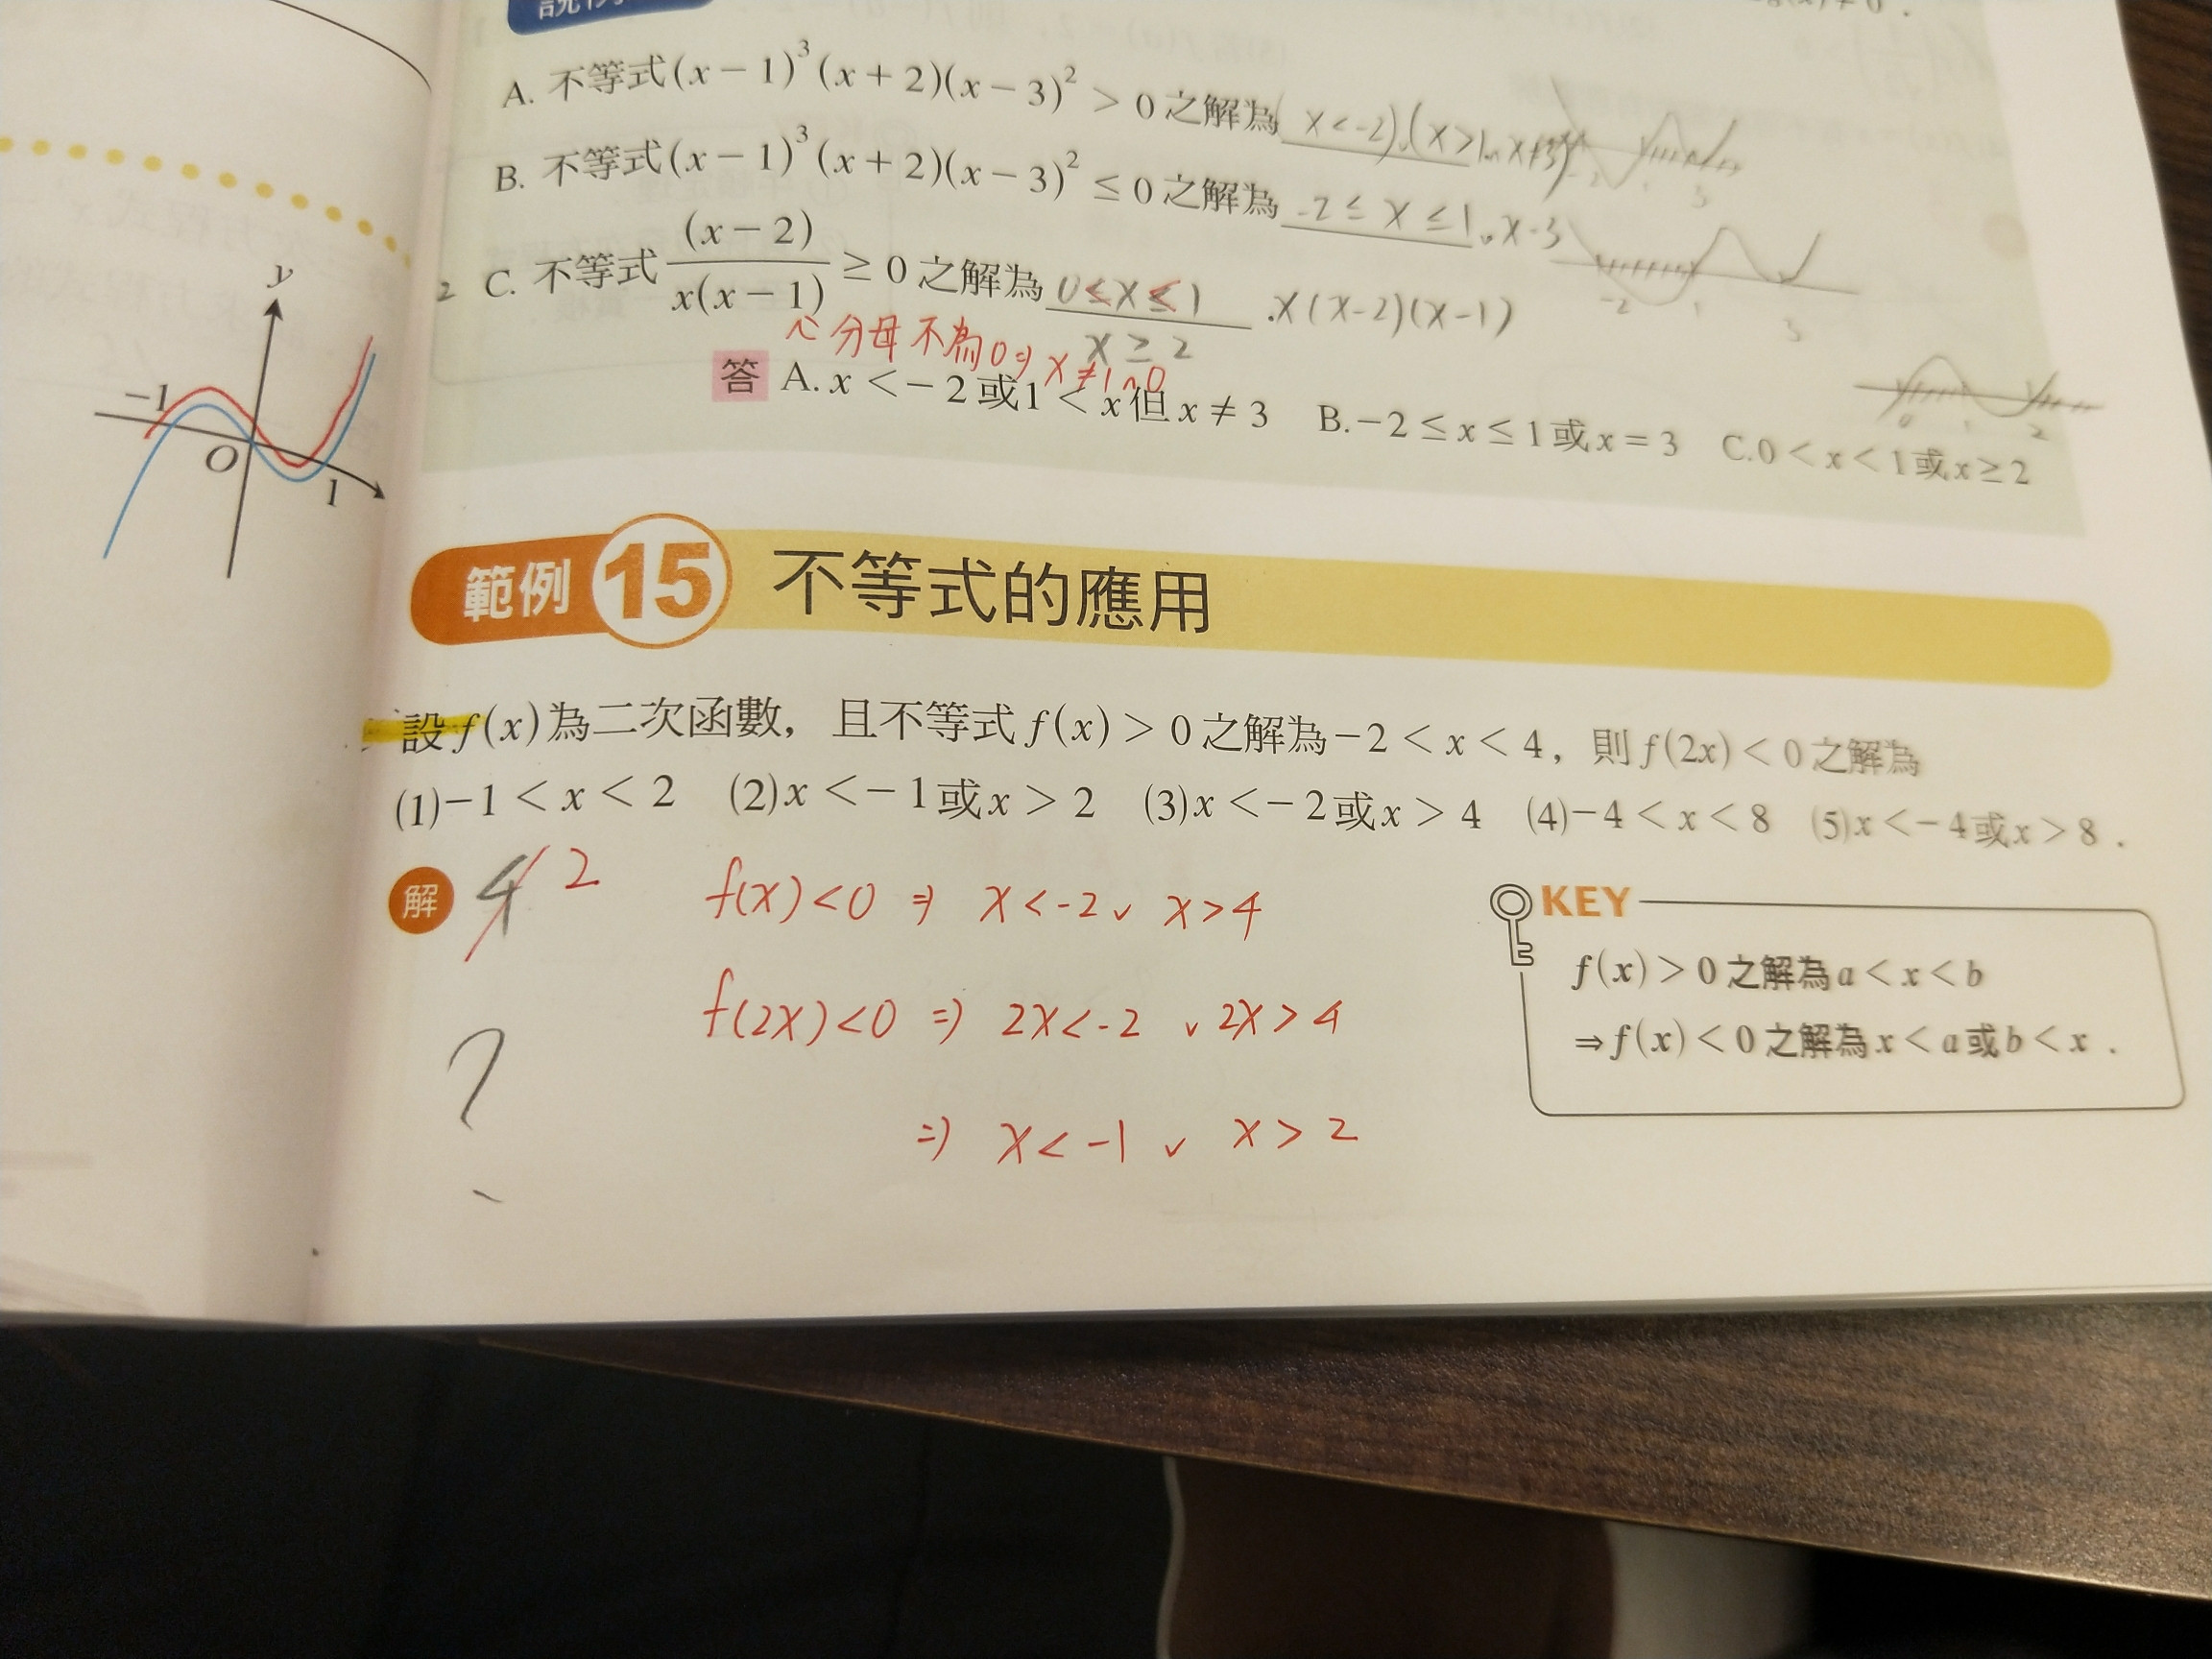 A. 不等式(x－1)³(x＋2)(x－3)²＞0之解為 (x<-2)∨(x>1∩x≠3)
-2 1 3
B. 不等式(x－1)³(x＋2)(x－3)²≤0之解為 -2≤x≤1∨x=3
-2 1 3
2 C. 不等式(x－2)/x(x－1)≥0之解為 0≤x≤1 .x(x-2)(x-1)
x≥2
分母不為0⇒x≠1∩0
0 1 2
答 A.x＜－2或1＜x但x≠3 B.－2≤x≤1或x＝3 C.0＜x＜1或x≥2
y
－1
O
1
範例 15 不等式的應用
設f(x)為二次函數，且不等式f(x)＞0之解為－2＜x＜4，則f(2x)＜0之解為
(1)－1＜x＜2 (2)x＜－1或x＞2 (3)x＜－2或x＞4 (4)－4＜x＜8 (5)x＜－4或x＞8．
解 4 2
f(x)<0 ⇒ x<-2 ∨ x>4
f(2x)<0 ⇒ 2x<-2 ∨ 2x>4
⇒ x<-1 ∨ x>2
?
KEY
f(x)＞0之解為a＜x＜b
⇒f(x)＜0之解為x＜a或b＜x．